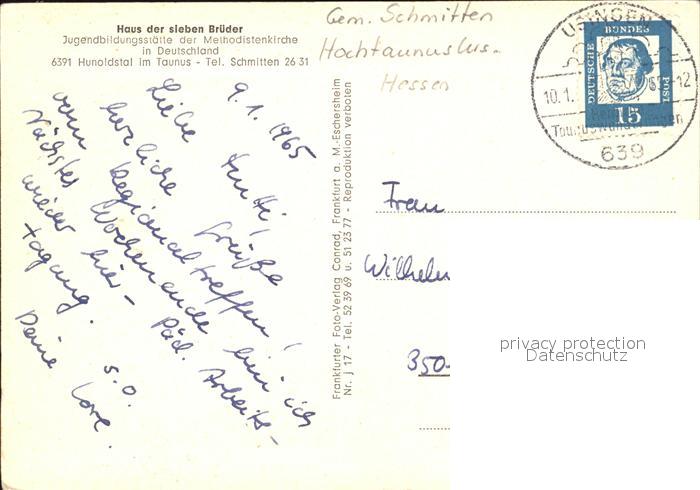 Haus der sieben Brüder
Jugendbildungsstätte der Methodistenkirche
in Deutschland
6391 Hunoldstal im Taunus - Tel. Schmitten 26 31
Gem. Schmitten
Hochtaunuskrs.
Hessen
USINGEN
10.1. 65-12
639
DEUTSCHE
BUNDES
POST
15
9. 1. 1965
Liebe Mutti,
herzliche Grüße
vom Regionaltreffen!
Nächstes Wochenende bin ich
wieder hier - Päd. Arbeits-
tagung. s.o.
Deine Lore.
Frankfurter Foto-Verlag Conrad, Frankfurt a. M.-Eschersheim
Nr. J 17 - Tel. 52 39 69 u. 51 23 77 - Reproduktion verboten
Frau
Wilhelm
350
privacy protection
Datenschutz